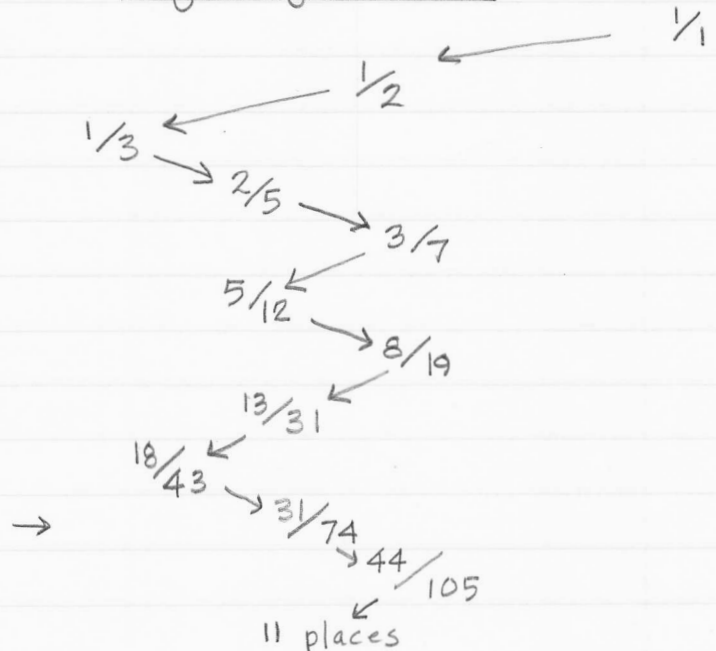 1/1
1/2
1/3
2/5
3/7
5/12
8/19
13/31
18/43
31/74
44/105
11 places